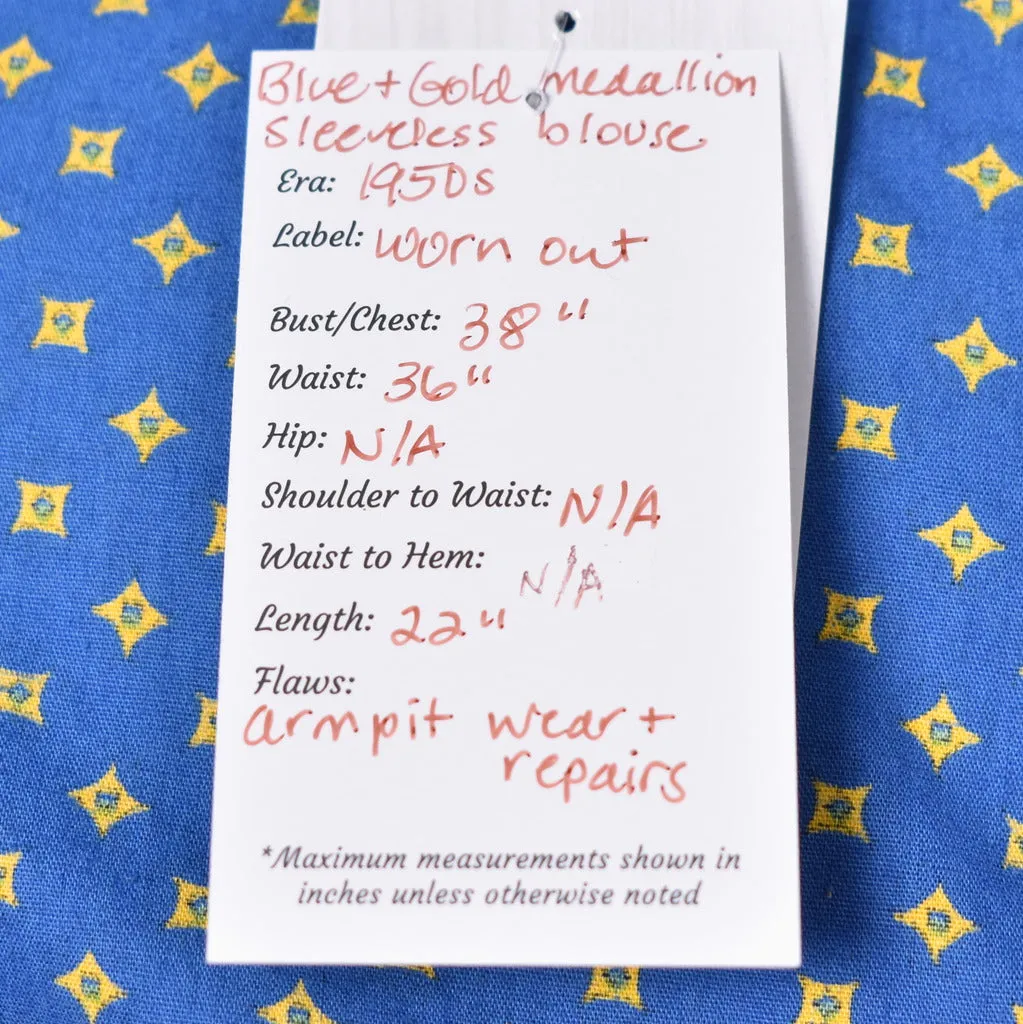 Blue + Gold medallion
sleeveless blouse
Era: 1950s
Label: worn out
Bust/Chest: 38"
Waist: 36"
Hip: N/A
Shoulder to Waist: N/A
Waist to Hem: N/A
Length: 22"
Flaws:
armpit wear +
repairs
*Maximum measurements shown in
inches unless otherwise noted